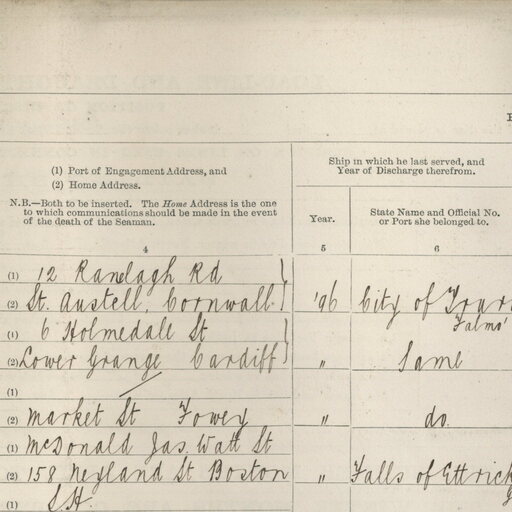 (1) Port of Engagement Address, and
(2) Home Address.
N.B.—Both to be inserted. The Home Address is the one
to which communications should be made in the event
of the death of the Seaman.
4
Ship in which he last served, and
Year of Discharge therefrom.
Year.
5
State Name and Official No.
or Port she belonged to.
6
(1) 12 Ranelagh Rd
(2) St. Austell, Cornwall. '96 City of
(1) 6 Holmedale St
(2) Lower Grange Cardiff " Same
(1)
(2) Market St Fowey " do.
(1) McDonald Jas. Watt St
(2) 158 Neyland St Boston " Falls of Ettrick
(1)